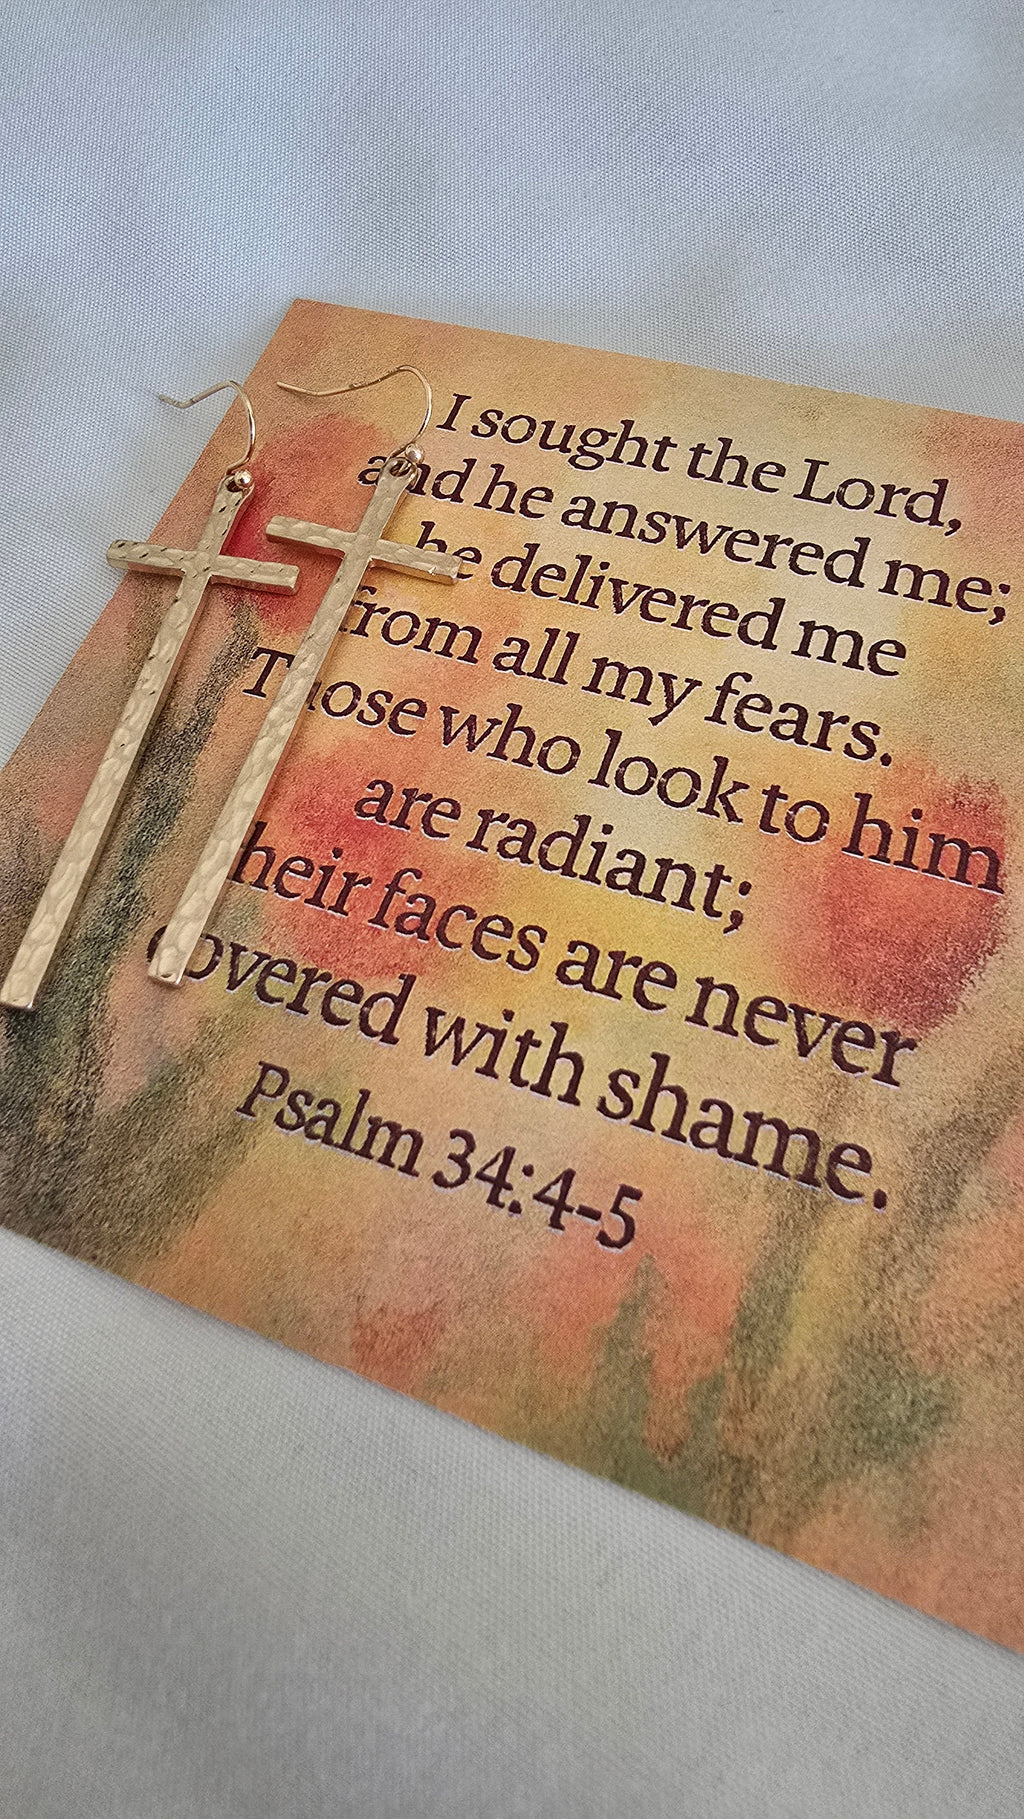 I sought the Lord,
and he answered me;
he delivered me
from all my fears.
Those who look to him
are radiant;
their faces are never
covered with shame.
Psalm 34:4-5